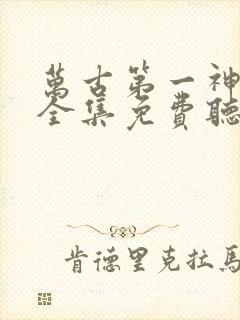 萬古第一神
全集免費聽
肯德里克拉馬